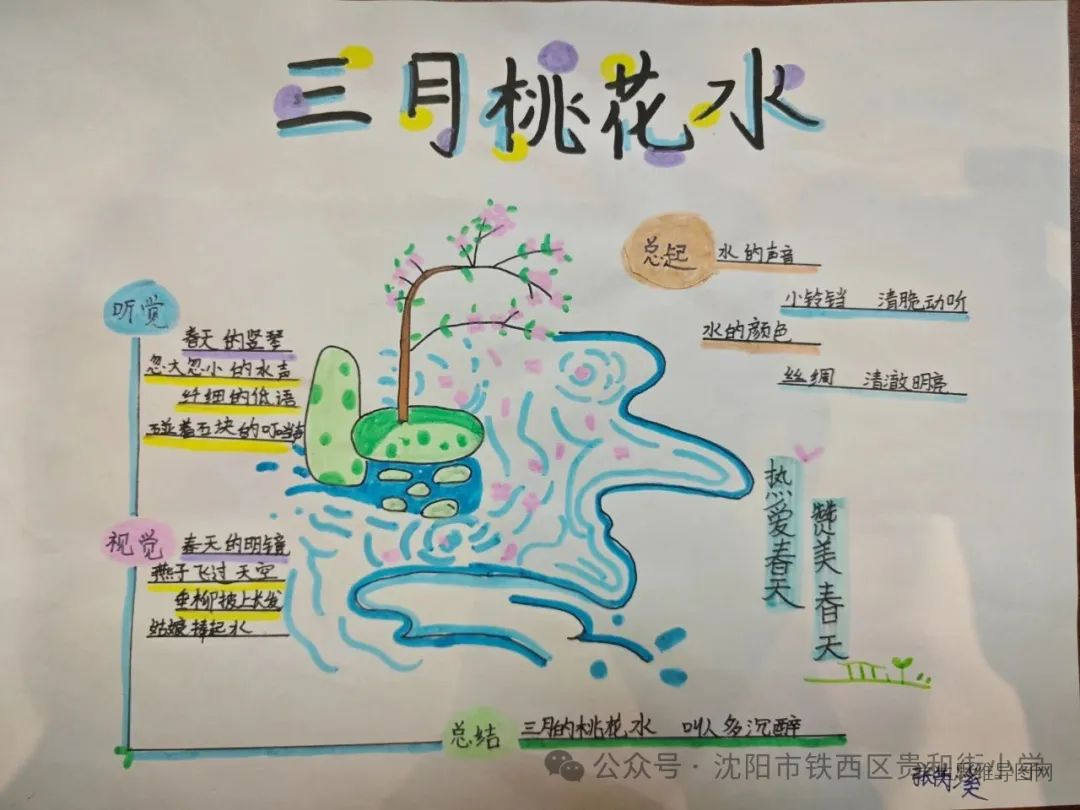 三月桃花水
总起
水的声音
小铃铛 清脆动听
水的颜色
丝绸 清澈明亮
听觉
春天的竖琴
忽大忽小的水声
纤细的低语
碰着石块的叮当声
视觉
春天的明镜
燕子飞过天空
垂柳披上长发
姑娘捧起水
热爱春天
赞美春天
总结
三月的桃花水 叫人多沉醉
公众号·沈阳市铁西区贵和街小学
思维导图网